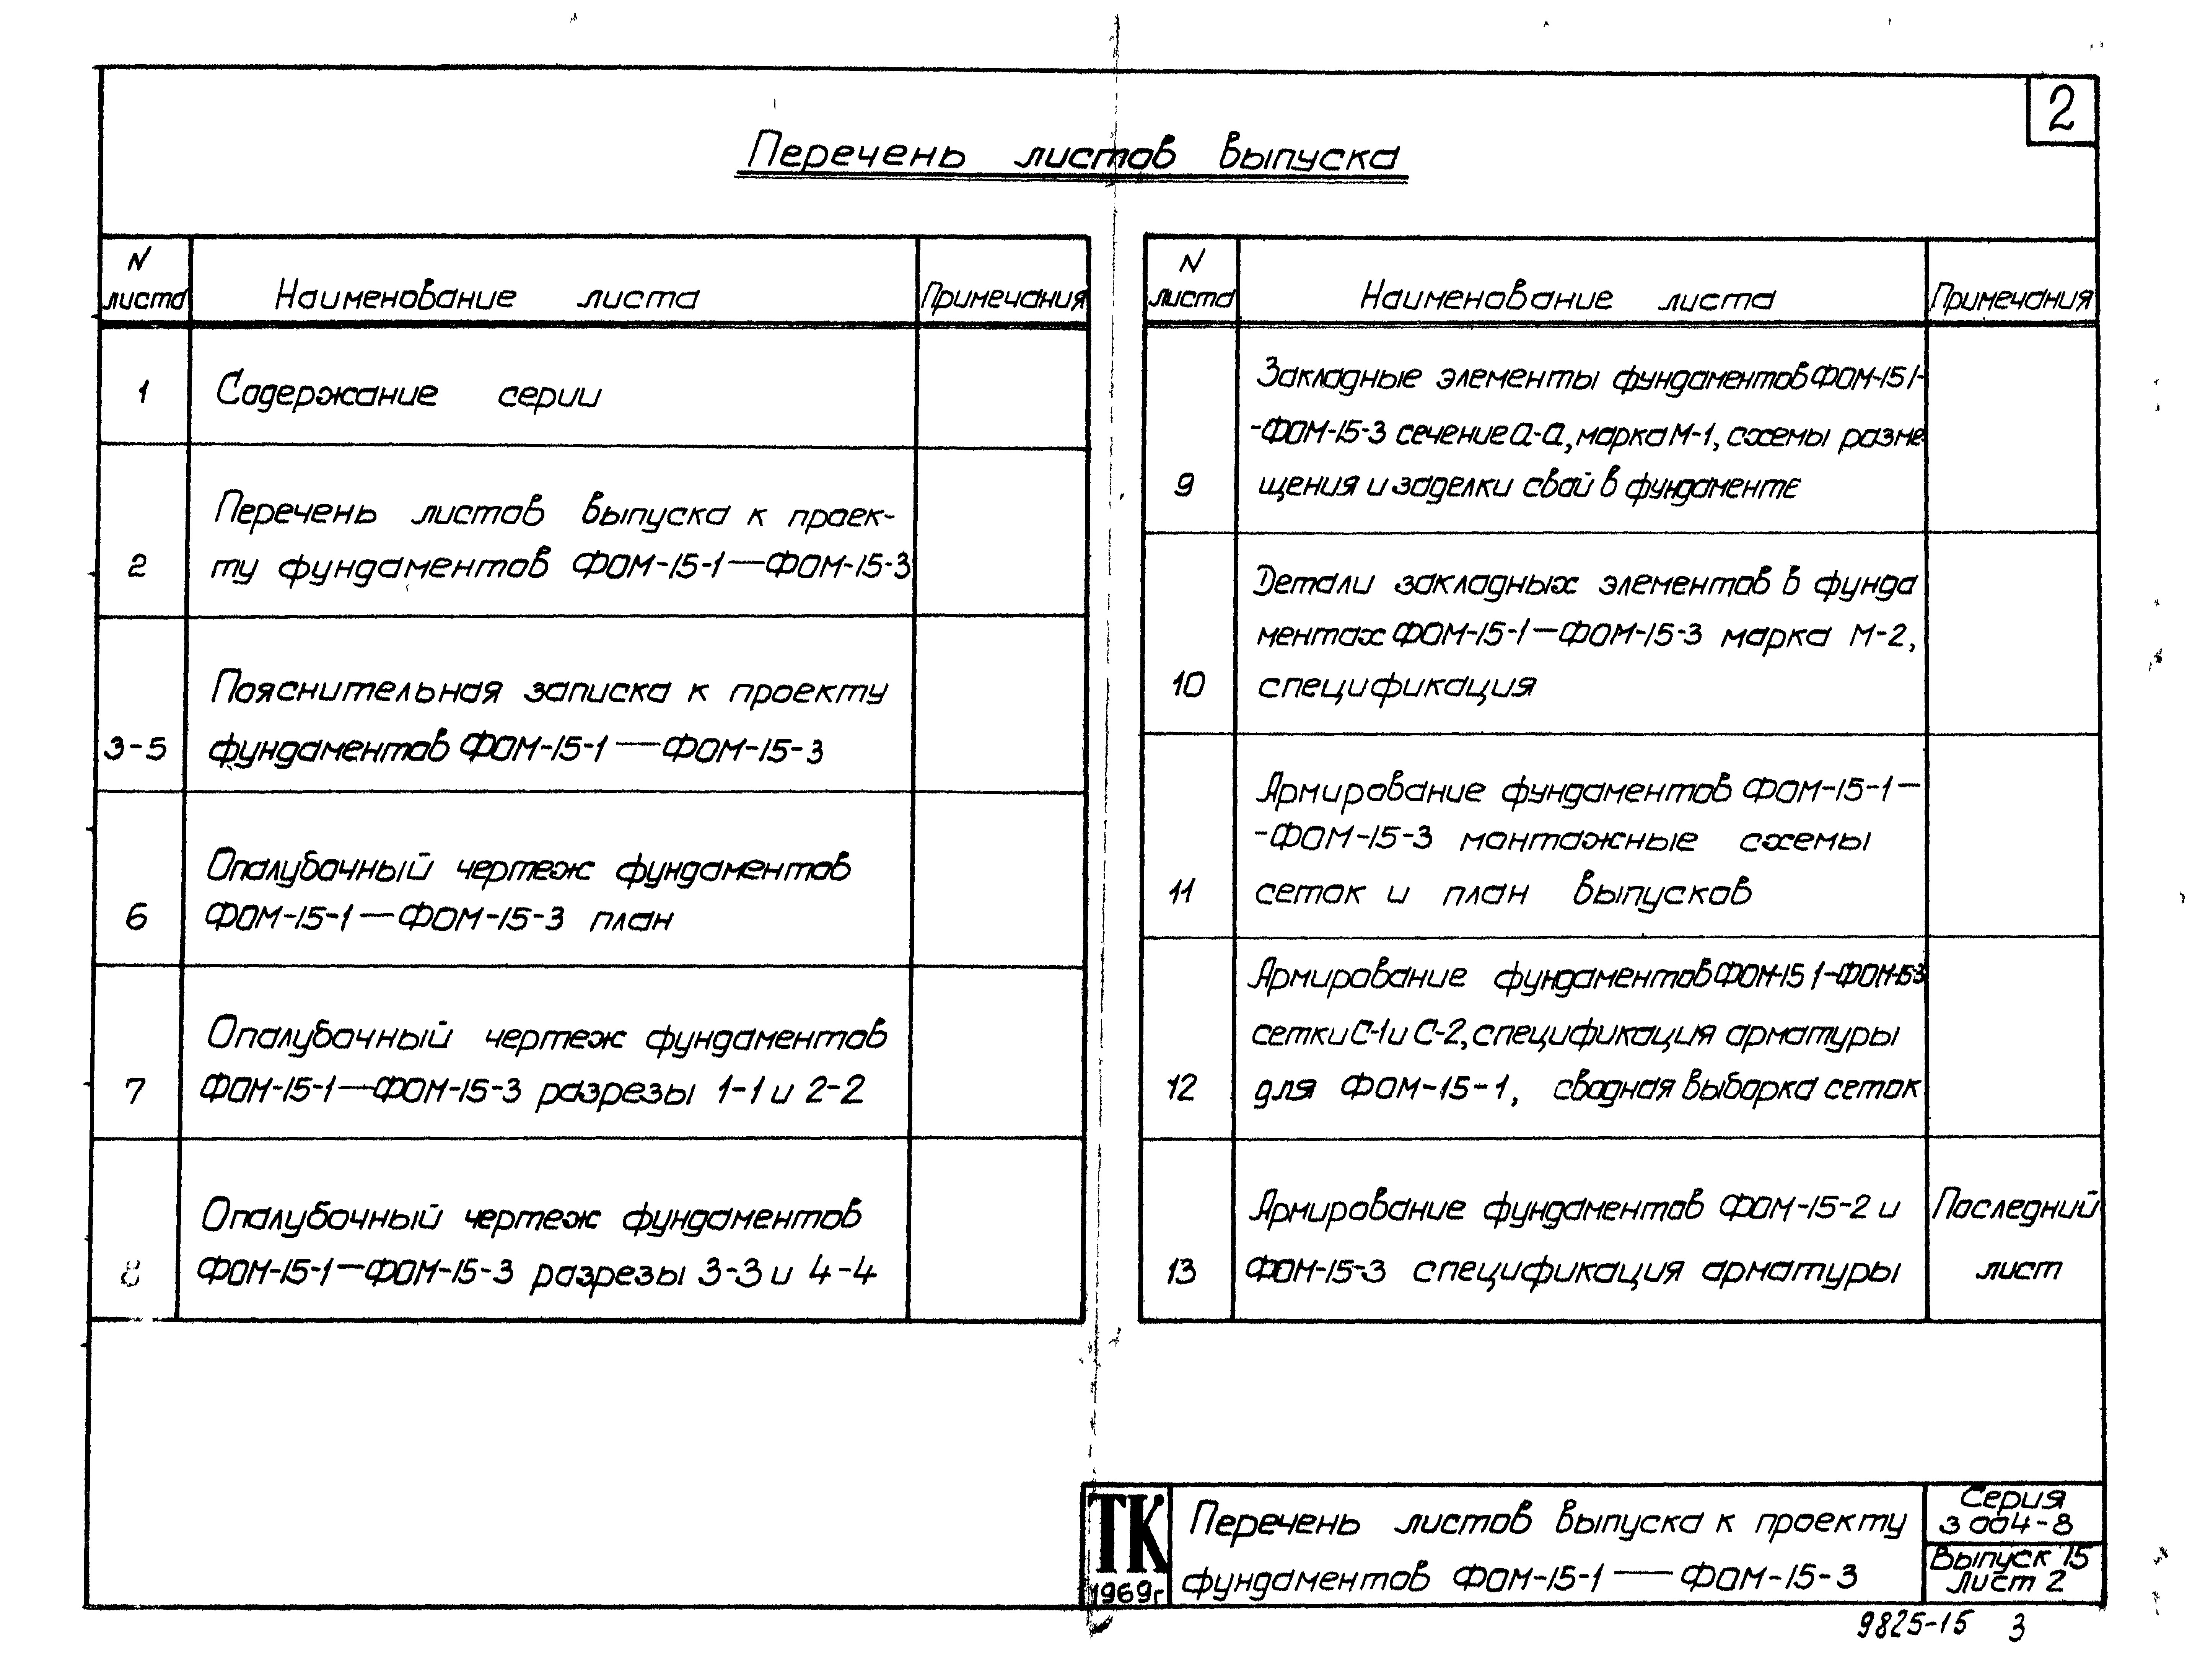 2
Перечень листов выпуска
N
листа
Наименование листа
Примечания
1
Содержание серии
2
Перечень листов выпуска к проек-
ту фундаментов ФОМ-15-1—ФОМ-15-3
3-5
Пояснительная записка к проекту
фундаментов ФОМ-15-1—ФОМ-15-3
6
Опалубочный чертеж фундаментов
ФОМ-15-1—ФОМ-15-3 план
7
Опалубочный чертеж фундаментов
ФОМ-15-1—ФОМ-15-3 разрезы 1-1 и 2-2
8
Опалубочный чертеж фундаментов
ФОМ-15-1—ФОМ-15-3 разрезы 3-3 и 4-4
N
листа
Наименование листа
Примечания
9
Закладные элементы фундаментов ФОМ-15 1-
-ФОМ-15-3 сечение а-а, марка М-1, схемы разме
щения и заделки свай в фундаменте
10
Детали закладных элементов в фунда
ментах ФОМ-15-1—ФОМ-15-3 марка М-2,
спецификация
11
Армирование фундаментов ФОМ-15-1—
-ФОМ-15-3 монтажные схемы
сеток и план выпусков
12
Армирование фундаментов ФОМ-15 1-ФОМ-15-3
сетки С-1 и С-2, спецификация арматуры
для ФОМ-15-1, сводная выборка сеток
13
Армирование фундаментов ФОМ-15-2 и
ФОМ-15-3 спецификация арматуры
Последний
лист
ТК
1969г
Перечень листов выпуска к проекту
фундаментов ФОМ-15-1—ФОМ-15-3
Серия
3 004-8
Выпуск 15
Лист 2
9825-15 3